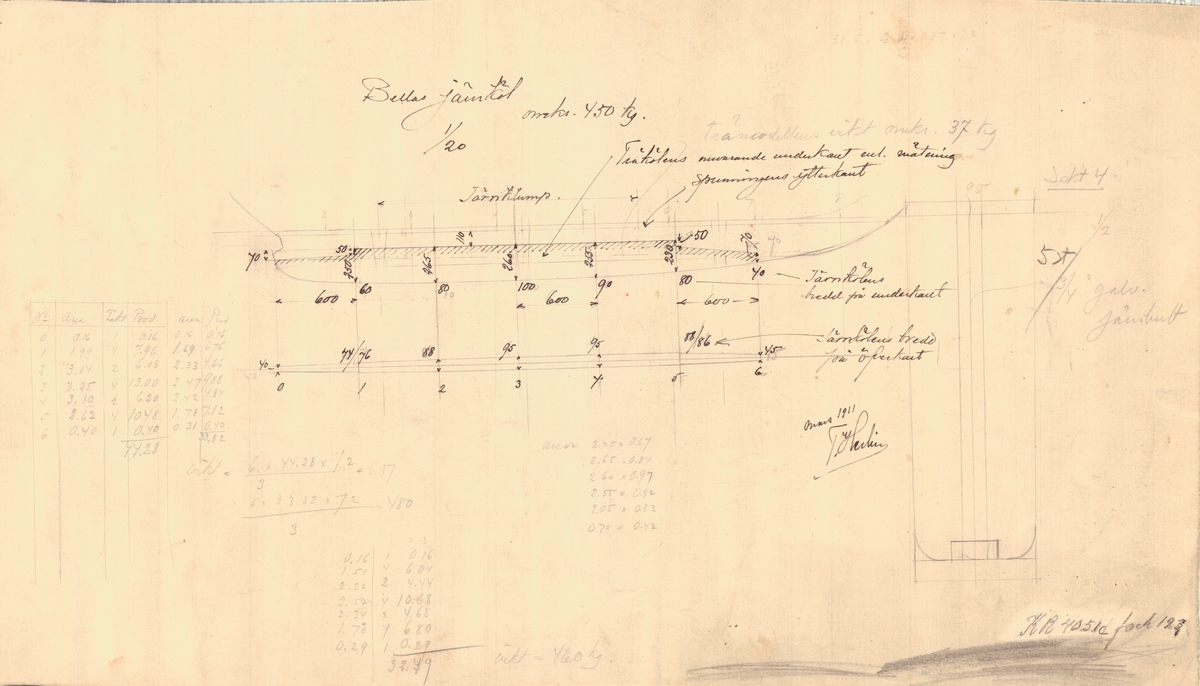 Bellas järnköl
omkr. 450 kg.
1/20
trämodellens vikt omkr. 37 kg
Träkölens nuvarande underkant enl. mätning
Spunningens ytterkant
Järnklump.
Sekt 4
1/2
95
70
50
250
60
265
80
110
260
100
255
90
50
230
80
70
40
70
600
600
600
Järnkölens
bredd på underkant
5 st
3/4" galv.
järnbult
40
74/76
88
95
95
88/86
45
Järnkölens bredd
på öfverkant
0 1 2 3 4 5 6
mars 1911
No Area Prod area Prod
0 0.16 0.16 0.16 0.16
1 1.99 4 7.96 1.69 6.76
2 3.04 2 6.08 2.33 4.66
3 3.25 4 13.00 2.47 9.88
4 3.10 2 6.20 2.42 4.84
5 2.62 4 10.48 1.78 7.12
6 0.40 1 0.40 0.31 0.40
44.28
33.82
vikt = 6 x 44.28 x 1.2 = 37
3
480
3
areor 2.50 x 0.67
2.65 x 0.84
2.60 x 0.97
2.55 x 0.92
2.05 x 0.82
0.70 x 0.42
0.16 1 0.16
1.51 4 6.04
2.22 2 4.44
2.52 4 10.08
2.34 2 4.68
1.70 4 6.80
0.29 1 0.29
32.49
vikt = 460 kg
KR 4051d fack 123